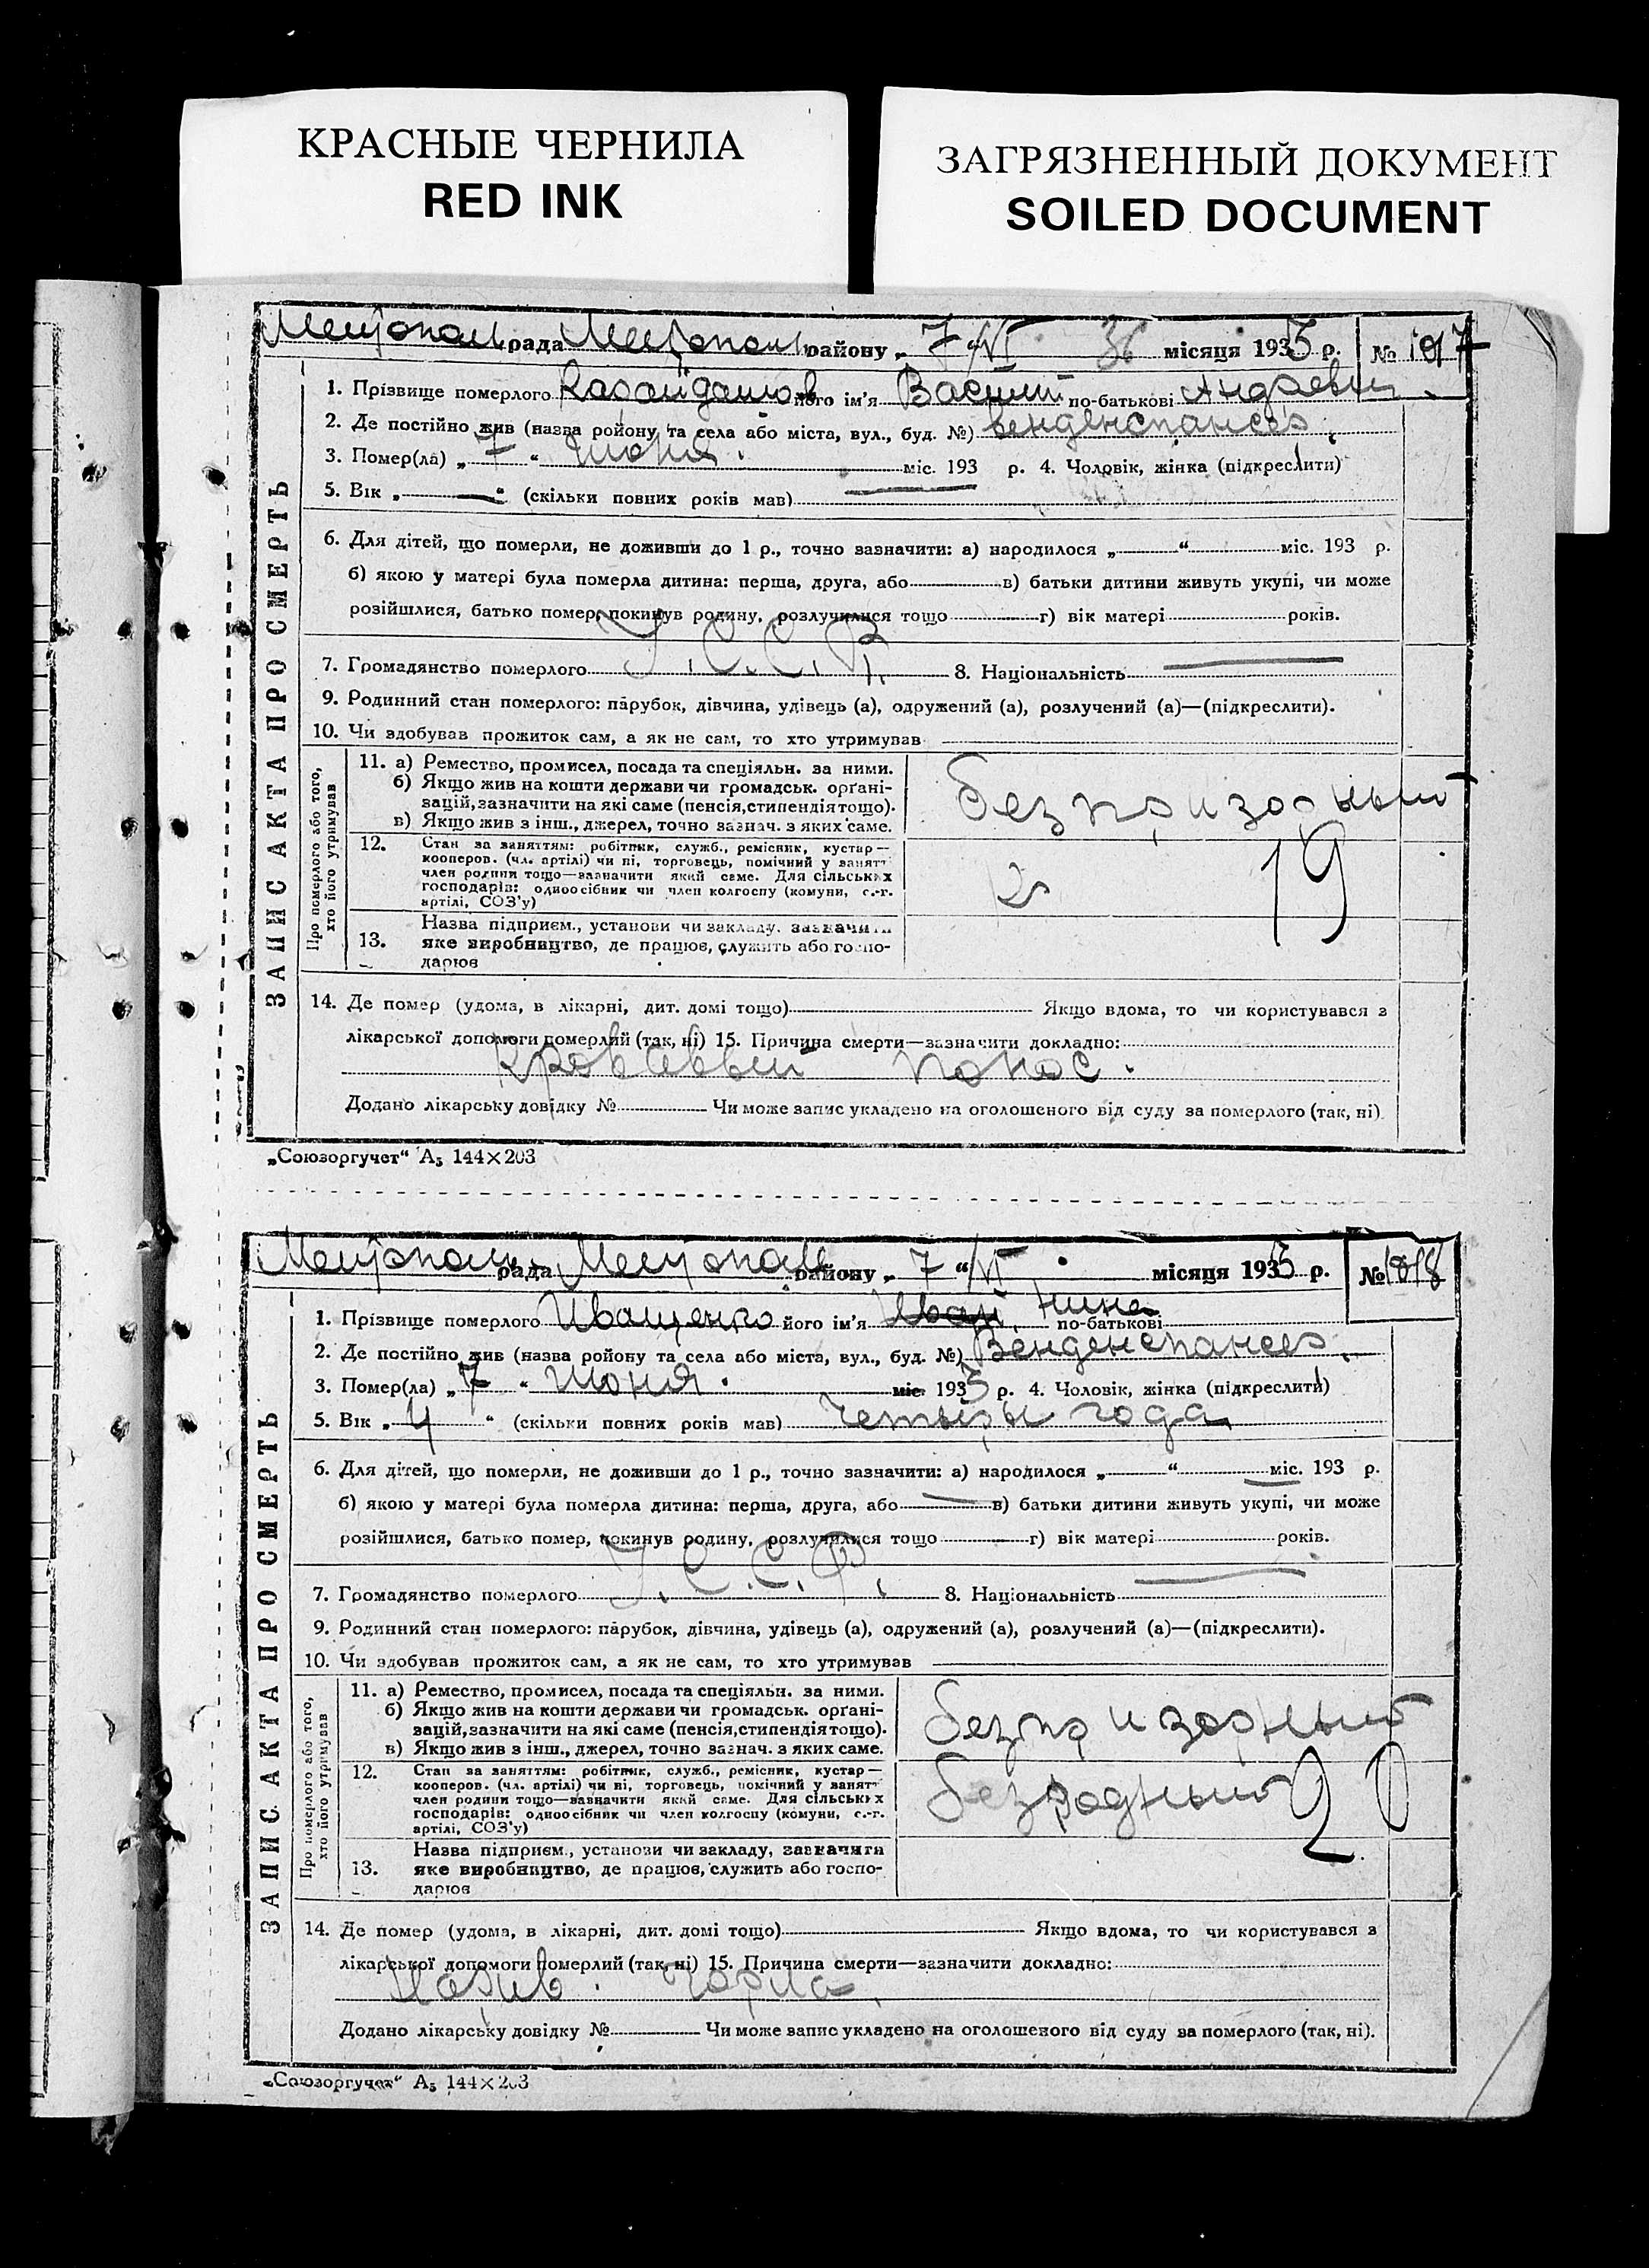 КРАСНЫЕ ЧЕРНИЛА
RED INK
ЗАГРЯЗНЕННЫЙ ДОКУМЕНТ
SOILED DOCUMENT
рада району „ 7 “ VI 36 місяця 1933 р. № 1017
1. Прізвище померлого його ім’я Василий по-батькові Андреевич
2. Де постійно жив (назва району та села або міста, вул., буд. №)
3. Помер(ла) „ 7 “ июня. міс. 193 р. 4. Чоловік, жінка (підкреслити)
5. Вік „ — “ (скільки повних років мав)
6. Для дітей, що померли, не доживши до 1 р., точно зазначити: а) народилося „ “ міс. 193 р.
б) якою у матері була померла дитина: перша, друга, або в) батьки дитини живуть укупі, чи може
розійшлися, батько помер, покинув родину, розлучилися тощо г) вік матері років.
7. Громадянство померлого У.С.С.Р. 8. Національність —
9. Родинний стан померлого: парубок, дівчина, удівець (а), одружений (а), розлучений (а)—(підкреслити).
10. Чи здобував прожиток сам, а як не сам, то хто утримував
ЗАПИС АКТА ПРО СМЕРТЬ
Про померлого або того, хто його утримував
11. а) Ремество, промисел, посада та спеціяльн. за ними.
б) Якщо жив на кошти держави чи громадськ. орґані-
зацій, зазначити на які саме (пенсія, стипендія тощо).
в) Якщо жив з інш., джерел, точно зазнач. з яких саме.
безпризорный
12. Стан за заняттям: робітник, служб., ремісник, кустар—
кооперов. (чл. артілі) чи ні, торговець, помічний у занятт
член родини тощо—зазначити який саме. Для сільських
господарів: одноосібник чи член колгоспу (комуни, с.-г.
артілі, СОЗ’у)
19
13. Назва підприєм., установи чи закладу, зазначити
яке виробництво, де працює, служить або госпо-
дарює
14. Де помер (удома, в лікарні, дит. домі тощо) Якщо вдома, то чи користувався з
лікарської допомоги померлий (так, ні) 15. Причина смерти—зазначити докладно:
Кровавый понос.
Додано лікарську довідку № Чи може запис укладено на оголошеного від суду за померлого (так, ні).
„Союзоргучет“ А5 144×203
рада району „ 7 “ VI місяця 1933 р. № 1018
1. Прізвище померлого Иващенко його ім’я Нина по-батькові
2. Де постійно жив (назва району та села або міста, вул., буд. №)
3. Помер(ла) „ 7 “ июня. міс. 1933 р. 4. Чоловік, жінка (підкреслити)
5. Вік „ 4 “ (скільки повних років мав) Четыры года
6. Для дітей, що померли, не доживши до 1 р., точно зазначити: а) народилося „ “ міс. 193 р.
б) якою у матері була померла дитина: перша, друга, або — в) батьки дитини живуть укупі, чи може
розійшлися, батько помер, покинув родину, розлучилися тощо г) вік матері років.
7. Громадянство померлого У.С.С.Р. 8. Національність —
9. Родинний стан померлого: парубок, дівчина, удівець (а), одружений (а), розлучений (а)—(підкреслити).
10. Чи здобував прожиток сам, а як не сам, то хто утримував
ЗАПИС АКТА ПРО СМЕРТЬ
Про померлого або того, хто його утримував
11. а) Ремество, промисел, посада та спеціяльн. за ними.
б) Якщо жив на кошти держави чи громадськ. орґані-
зацій, зазначити на які саме (пенсія, стипендія тощо).
в) Якщо жив з інш., джерел, точно зазнач. з яких саме.
безпризорный
12. Стан за заняттям: робітник, служб., ремісник, кустар—
кооперов. (чл. артілі) чи ні, торговець, помічний у занятт
член родини тощо—зазначити який саме. Для сільських
господарів: одноосібник чи член колгоспу (комуни, с.-г.
артілі, СОЗ’у)
безродный 20
13. Назва підприєм., установи чи закладу, зазначити
яке виробництво, де працює, служить або госпо-
дарює
14. Де помер (удома, в лікарні, дит. домі тощо) Якщо вдома, то чи користувався з
лікарської допомоги померлий (так, ні) 15. Причина смерти—зазначити докладно:
Додано лікарську довідку № Чи може запис укладено на оголошеного від суду за померлого (так, ні).
„Союзоргучет“ А5 144×203